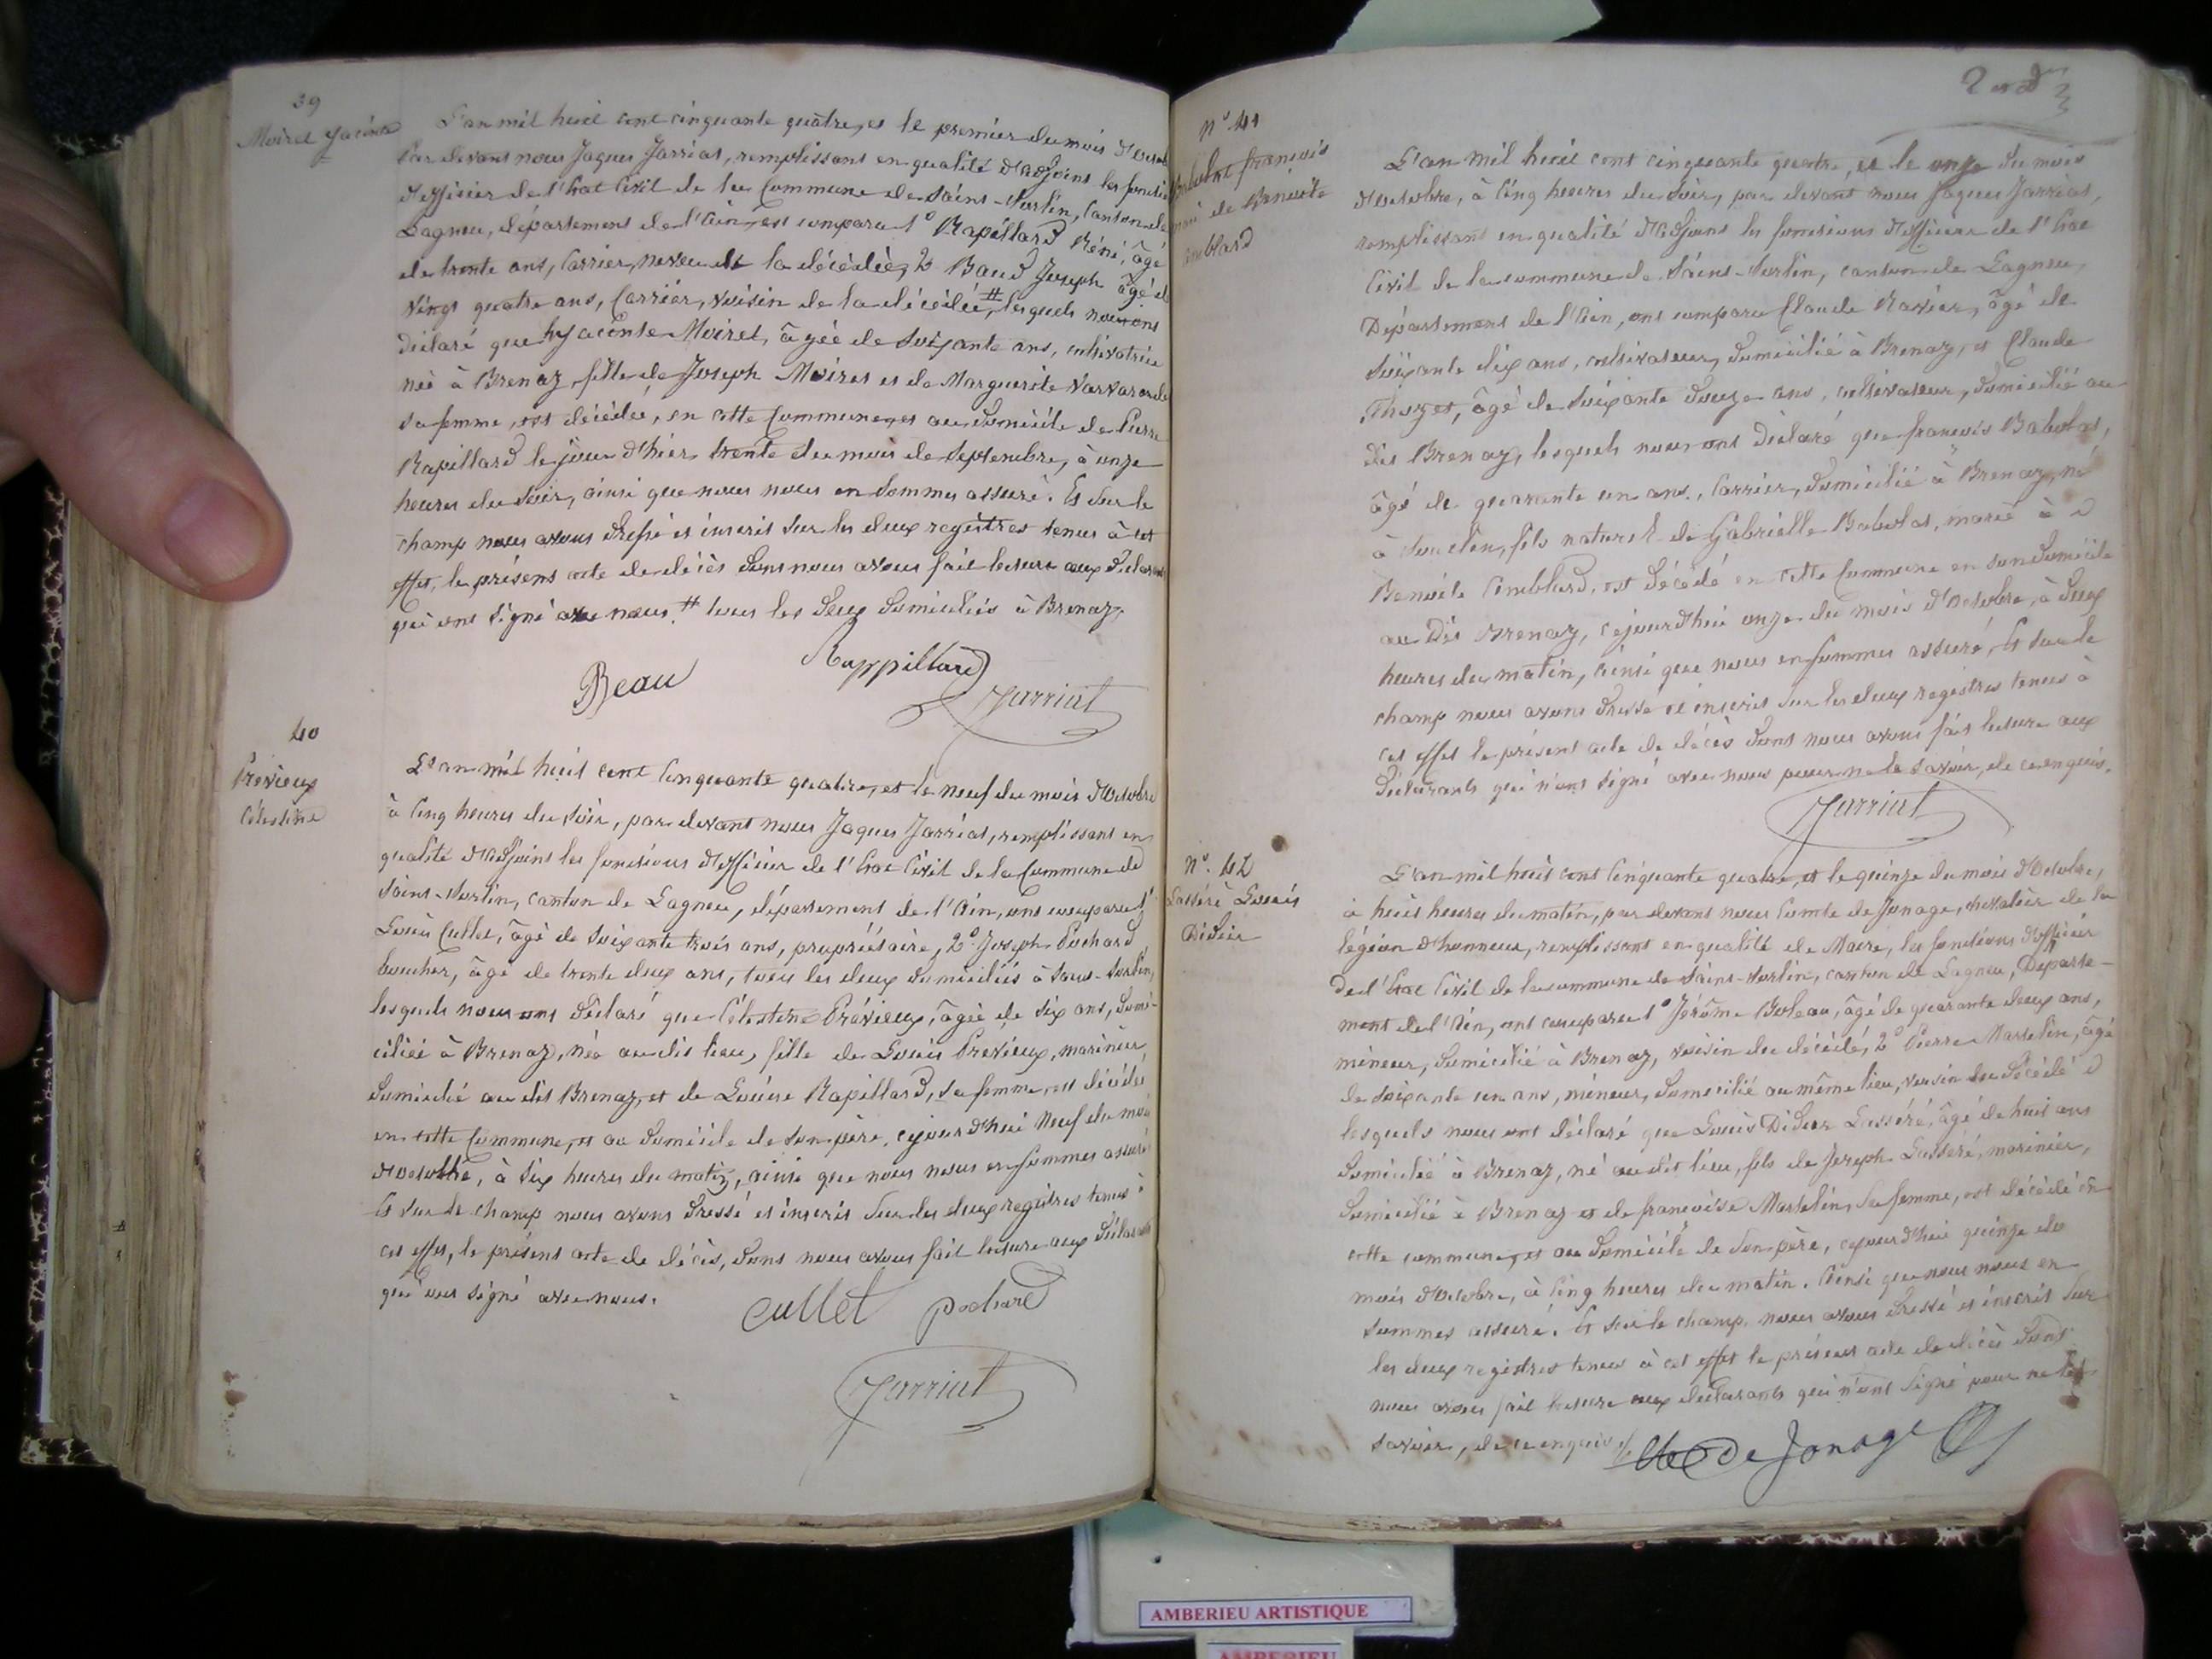 39
Moiret Yacinte
L'an mil huit cent cinquante quatre, et le premier du mois d'Octob
Par devant nous Jaques Jarriat, remplissant en qualité d'adjoint les foncti
d'officier de l'Etat Civil de la Commune de Saint-Sorlin, Canton de
Lagnieu, département de l'Ain, est comparu 1° Rapillard Réné, âgé
de trente ans, Carrier, neveu de la décédée, 2° Baud Joseph âgé de
vingt quatre ans, Carrier, voisin de la décédée, # lesquels nous ont
déclaré que hyacente Moiret, âgée de soixante ans, cultivatrice
née à Brenaz fille de Joseph Moiret et de Marguerite
sa femme, est décédée, en cette Commune et au domicile de Pierre
Rapillard le jour d'hier trente du mois de Septembre, à onze
heures du soir, ainsi que nous nous en sommes assuré. Et sur le
champ nous avons dressé et inscrit sur les deux registres tenus à cet
effet, le présent acte de décès dont nous avons fait lecture aux déclarants
qui ont signé avec nous. # tous les deux domiciliés à Brenaz.
Beau Rappillard
Jarriat
40
Prévieux
Célestine
L'an mil huit cent cinquante quatre, et le neuf du mois d'Octobre
à cinq heures du soir, par devant nous Jaques Jarriat, remplissant en
qualité d'adjoint les fonctions d'officier de l'Etat Civil de la Commune de
Saint-Sorlin, canton de Lagnieu, département de l'Ain, ont comparu 1°
Louis Cullet, âgé de soixante trois ans, propriétaire, 2° Joseph Pochard
boucher, âgé de trente deux ans, tous les deux domiciliés à Saint-Sorlin,
lesquels nous ont déclaré que Célestine Prévieux, âgée de six ans, domi-
ciliée à Brenaz, née au dit lieu, fille de Louis Prévieux, marinier
domicilié au dit Brenaz, et de Louise Rapillard, sa femme, est décédée
en cette Commune, et au domicile de son père, cejourd'hui neuf du mois
d'Octobre, à six heures du matin, ainsi que nous nous en sommes assuré
Et sur le champ nous avons dressé et inscrit sur les deux registres tenus à
cet effet, le présent acte de décès, dont nous avons fait lecture aux déclarants
qui ont signé avec nous.
Cullet Pochard
Jarriat
N° 41
françois
mari de Benoite
L'an mil huit cent cinquante quatre, et le onze du mois
d'Octobre, à cinq heures du soir, par devant nous Jaques Jarriat,
remplissant en qualité d'adjoint les fonctions d'officier de l'Etat
Civil de la commune de Saint-Sorlin, canton de Lagnieu,
Département de l'Ain, ont comparu Claude Ravier, âgé de
soixante dix ans, cultivateur, domicilié à Brenaz, et Claude
Thozet, âgé de soixante douze ans, cultivateur, domicilié au
dit Brenaz, lesquels nous ont déclaré que françois Babolat,
âgé de quarante un ans, Carrier, domicilié à Brenaz, né
à Souclin, fils naturel de Gabrielle Babolat, marié à
Benoite Comblard, est décédé en cette Commune en son domicile
au Dit Brenaz, cejourd'hui onze du mois d'Octobre, à deux
heures du matin, ainsi que nous en sommes assuré, Et sur le
champ nous avons dressé et inscrit sur les deux registres tenus à
cet effet le présent acte de décès dont nous avons fait lecture aux
déclarants qui n'ont signé avec nous pour ne le savoir, de ce enquis.
Jarriat
N°. 42
Lasséré Louis
Didier
L'an mil huit cent cinquante quatre, et le quinze du mois d'Octobre,
à huit heures du matin, par devant nous Comte de Jonage, chevalier de la
légion d'honneur, remplissant en qualité de Maire, les fonctions d'officier
De l'Etat Civil de la commune de Saint-Sorlin, canton de Lagnieu, Départe-
ment de l'Ain, ont comparu 1° Jérôme Boleau, âgé de quarante deux ans,
mineur, domicilié à Brenaz, voisin du décédé, 2° Pierre Martelin, âgé
de soixante un ans, mineur, domicilié au même lieu, voisin du décédé
lesquels nous ont déclaré que Louis Didier Lasséré, âgé de huit ans
domicilié à Brenaz, né au dit lieu, fils de Joseph Lasséré, marinier,
domicilié à Brenaz et de françoise Martelin, sa femme, est décédé en
cette commune, et au domicile de son père, cejourd'hui quinze du
mois d'Octobre, à cinq heures du matin. Ainsi que nous nous en
sommes assuré. Et sur le champ nous avons dressé et inscrit sur
les deux registres tenus à cet effet le présent acte de décès dont
nous avons fait lecture aux déclarants qui n'ont signé pour ne le
savoir, de ce enquis.
de Jonage
AMBERIEU ARTISTIQUE
AMBERIEU